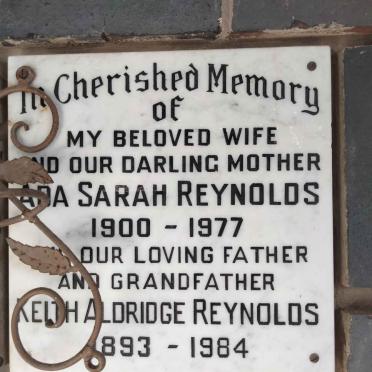 In Cherished Memory
of
MY BELOVED WIFE
AND OUR DARLING MOTHER
ADA SARAH REYNOLDS
1900 - 1977
OUR LOVING FATHER
AND GRANDFATHER
KEITH ALDRIDGE REYNOLDS
1893 - 1984